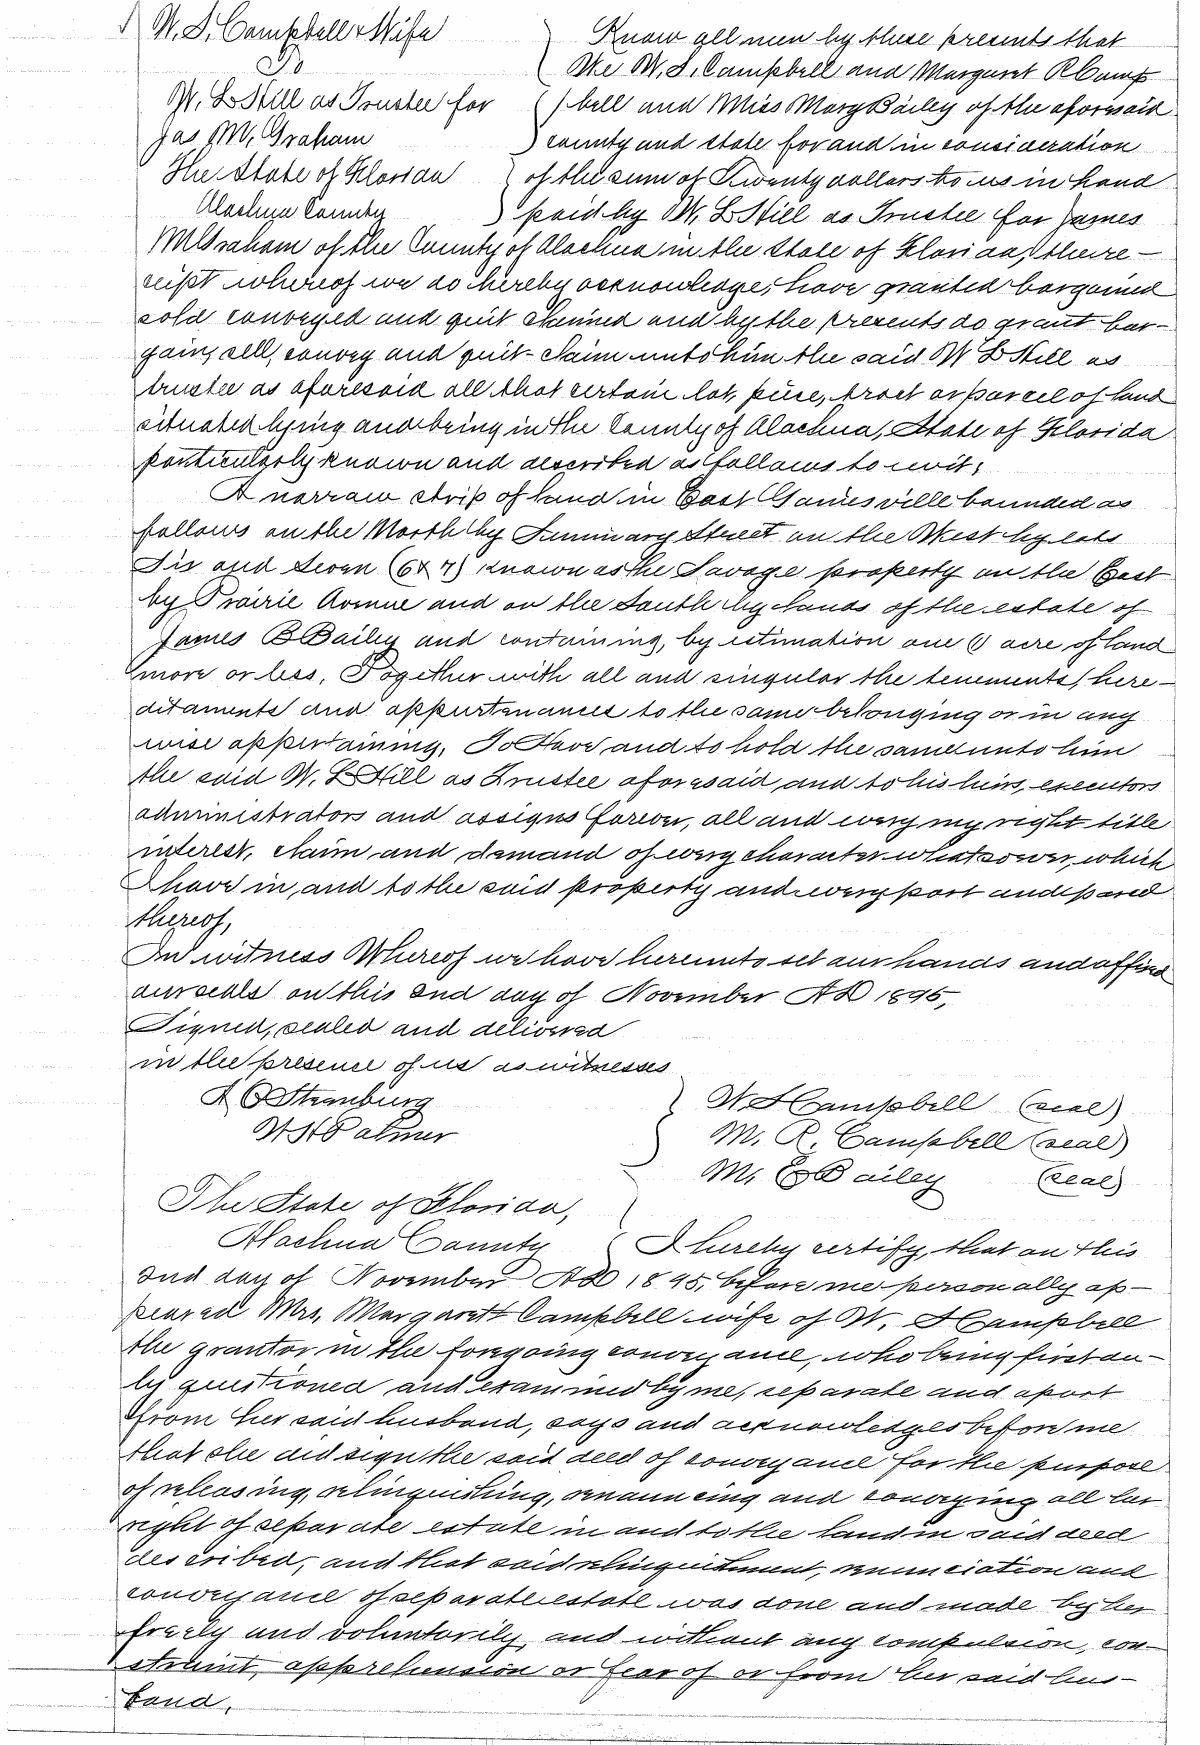 W. S. Campbell & Wife
To
W. L. Hill as Trustee for
Jas M. Graham
The State of Florida
Alachua County
Know all men by these presents that
We W. S. Campbell and Margaret R Camp
bell and Miss Mary Bailey of the aforesaid
county and state for and in consideration
of the sum of Twenty dollars to us in hand
paid by W. L Hill as Trustee for James
M Graham of the County of Alachua in the State of Florida, the re-
ceipt whereof we do hereby acknowledge, have granted bargained
sold conveyed and quit claimed and by the presents do grant bar-
gain, sell, convey and quit-claim unto him the said W L Hill as
trustee as aforesaid all that certain lot, piece, tract or parcel of land
situated lying and being in the County of Alachua, State of Florida
particularly known and described as follows to wit;
A narrow strip of land in East Gainesville bounded as
follows on the North by Seminary Street on the West by lots
Six and Seven (6 & 7) known as the Savage property on the East
by Prairie Avenue and on the South by lands of the estate of
James B Bailey and containing, by estimation one (1) acre of land
more or less. Together with all and singular the tenements, here-
ditaments and appurtenances to the same belonging or in any
wise appertaining. To Have and to hold the same unto him
the said W. L Hill as Trustee aforesaid and to his heirs, executors
administrators and assigns forever, all and every my right title
interest, claim and demand of every character whatsoever, which
I have in, and to the said property and every part and parcel
thereof,
In witness Whereof we have hereunto set our hands and affixed
our seals on this 2nd day of November AD 1895,
Signed, sealed and delivered
in the presence of us as witnesses
W. S Campbell (seal)
M. R. Campbell (seal)
M. E Bailey (seal)
W H Palmer
The State of Florida,
Alachua County
I hereby certify, that on this
2nd day of November AD 1895, before me personally ap-
peared Mrs. Margaret Campbell wife of W. S Campbell
the grantor in the foregoing conveyance, who being first du-
ly questioned and examined by me, separate and apart
from her said husband, says and acknowledges before me
that she did sign the said deed of conveyance for the purpose
of releasing, relinquishing, renouncing and conveying all her
right of separate estate in and to the land in said deed
described, and that said relinquishment, renunciation and
conveyance of separate estate was done and made by her
freely and voluntarily and without any compulsion, con-
straint, apprehension or fear of or from her said hus-
band.